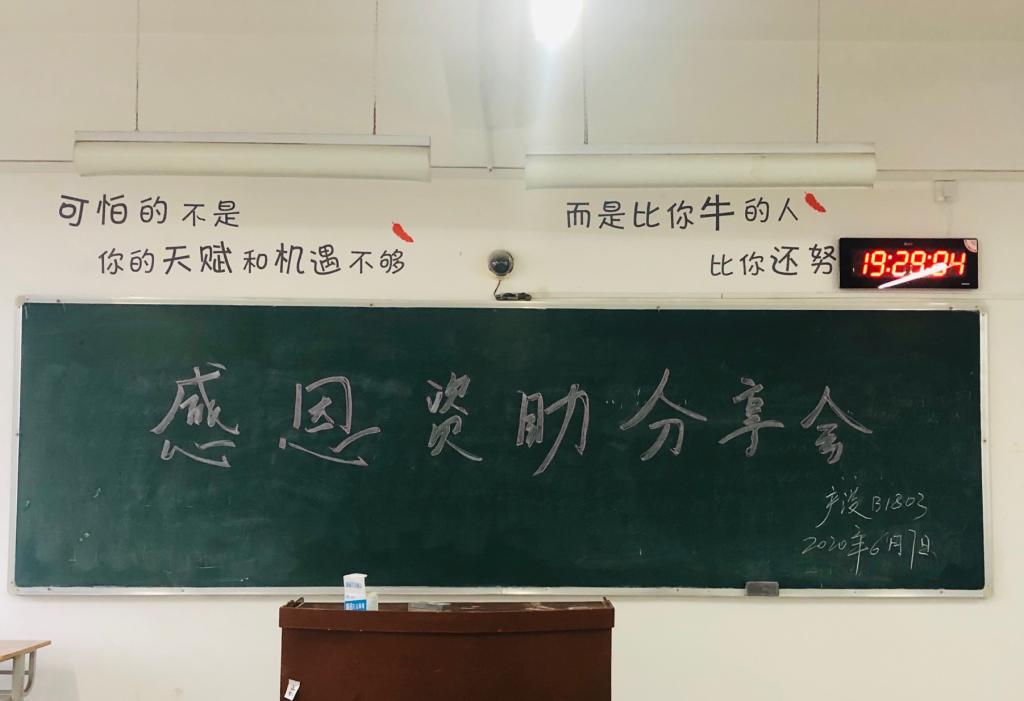 可怕的不是
你的天赋和机遇不够
而是比你牛的人
比你还努
19:29:04
感恩资助分享会
产设B1803
2020年6月7日